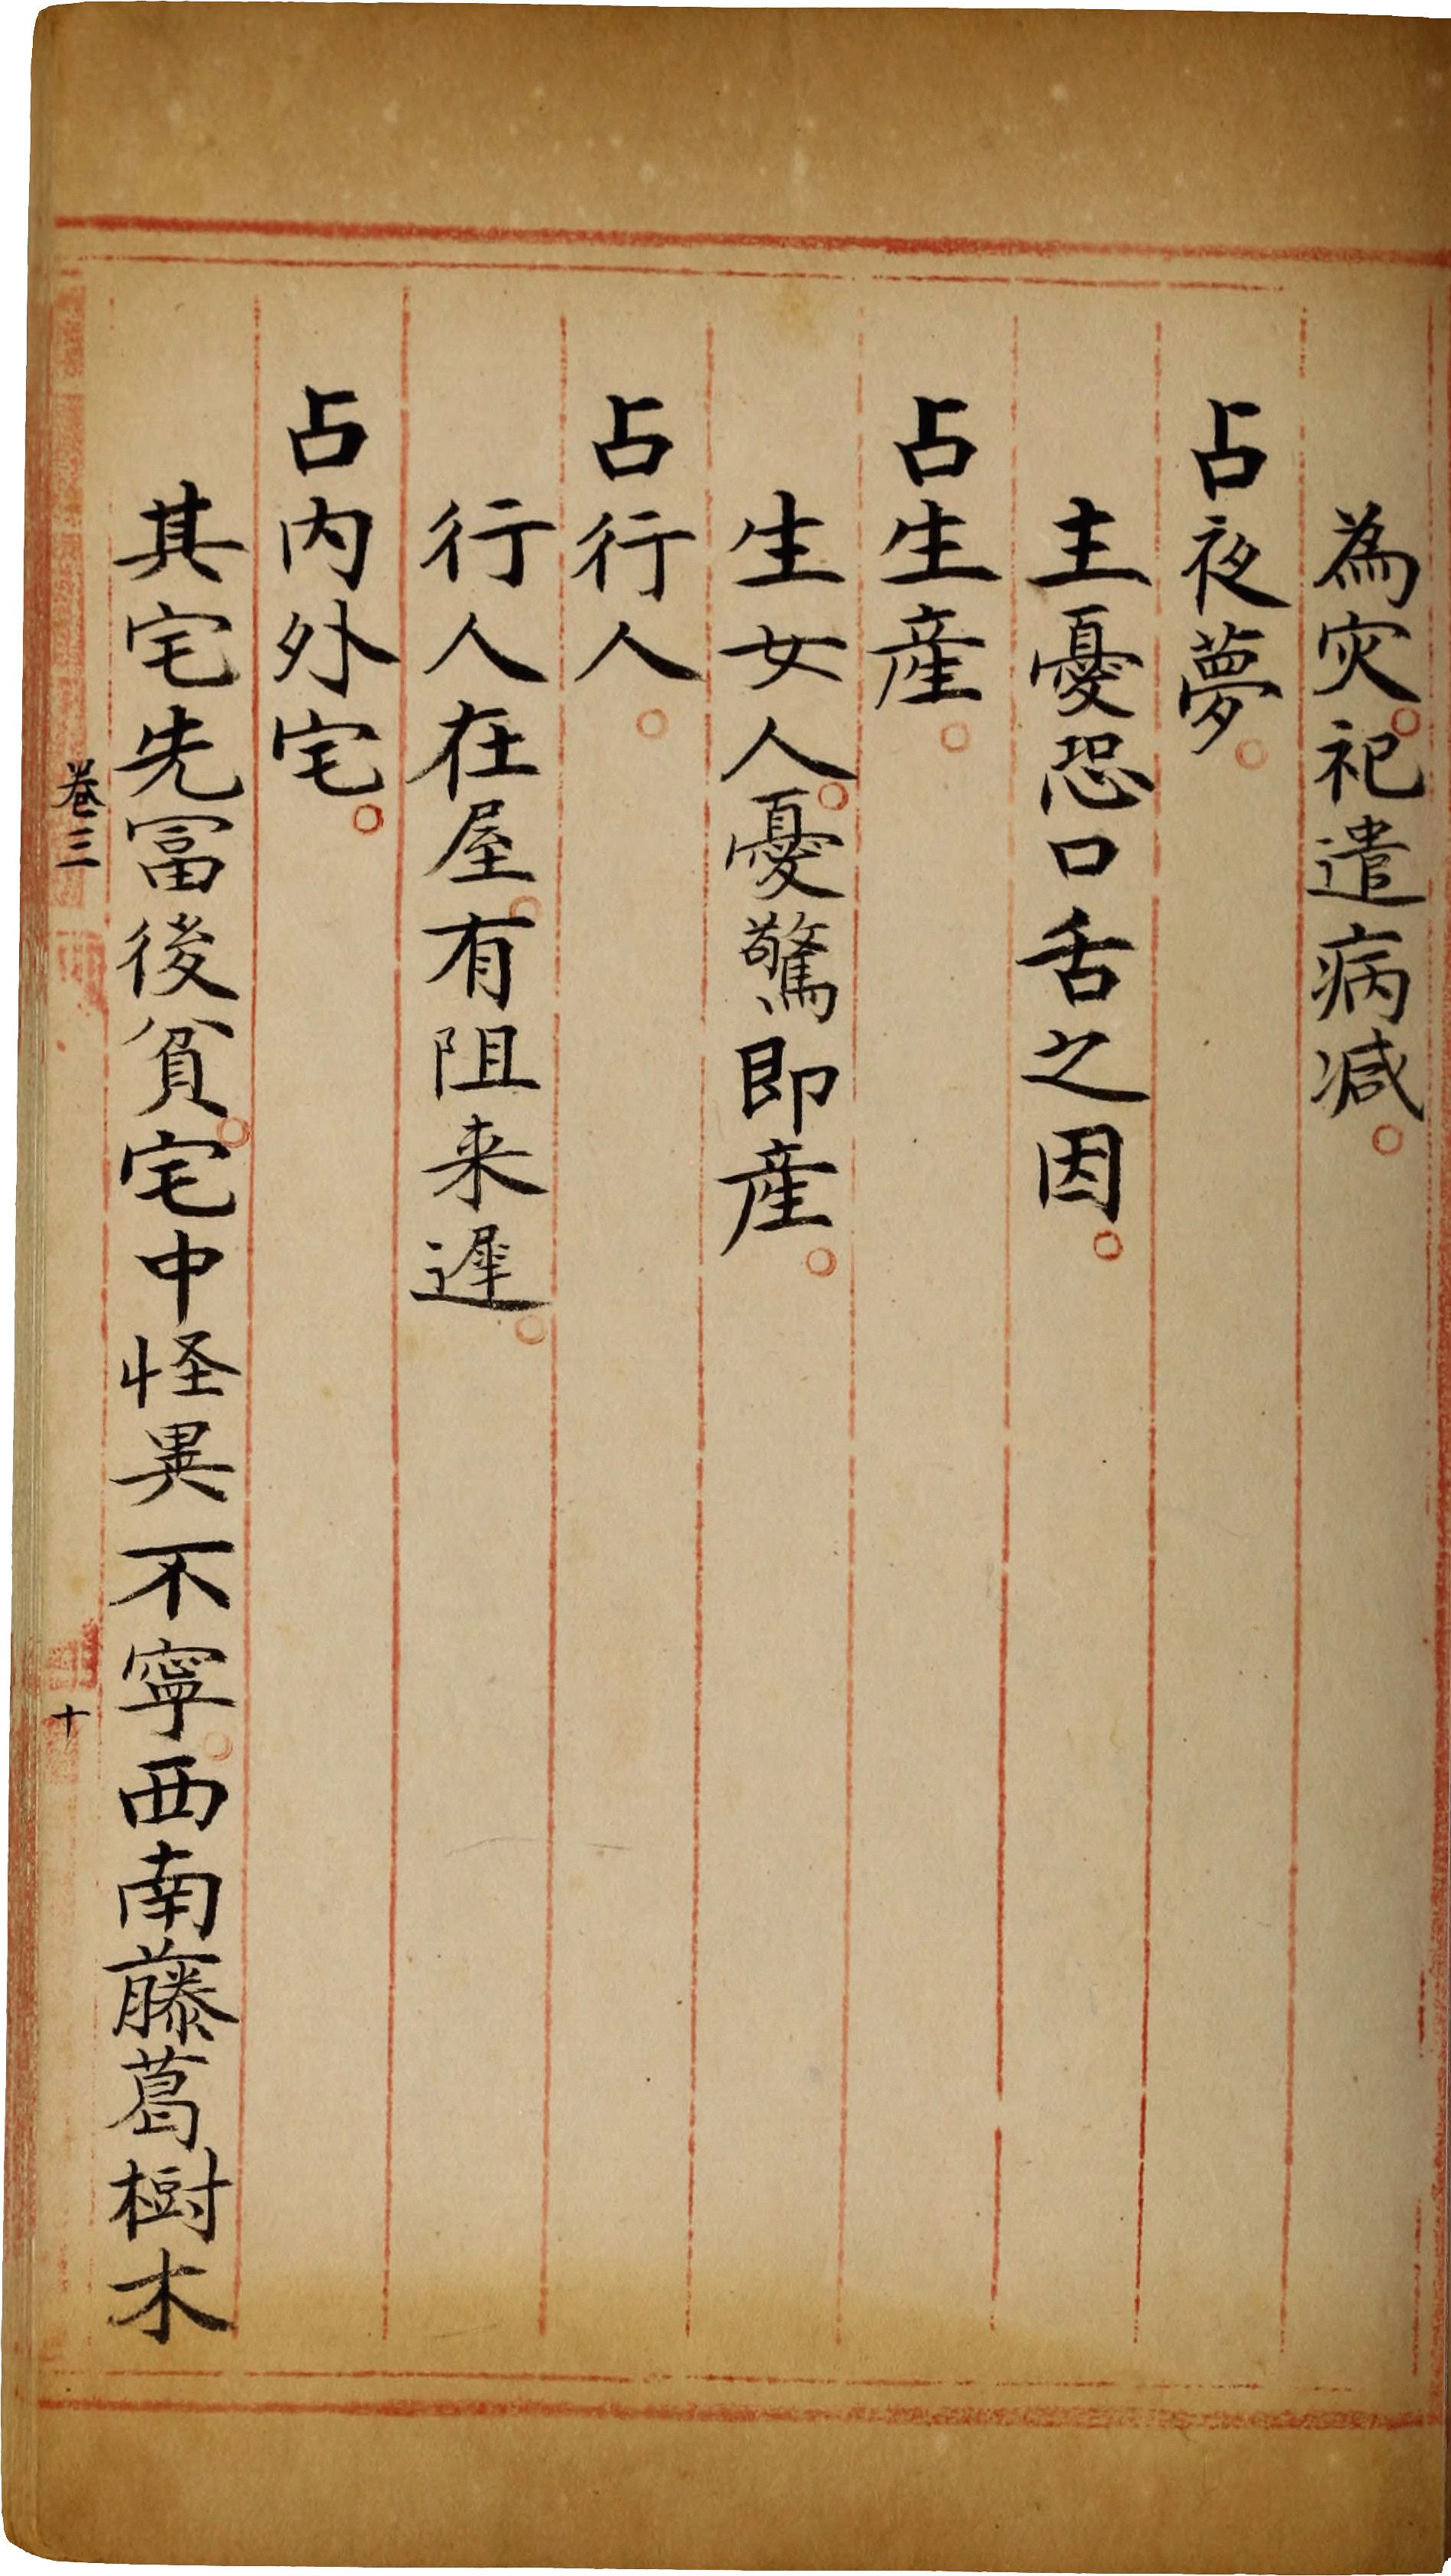 為灾。祀遣病减。
占夜夢。
主憂恐口舌之因。
占生産。
生女人。憂驚即産。
占行人。
行人在屋。有阻来遲。
占内外宅。
其宅先冨後貧。宅中怪異不寧。西南藤葛樹木
卷三
十